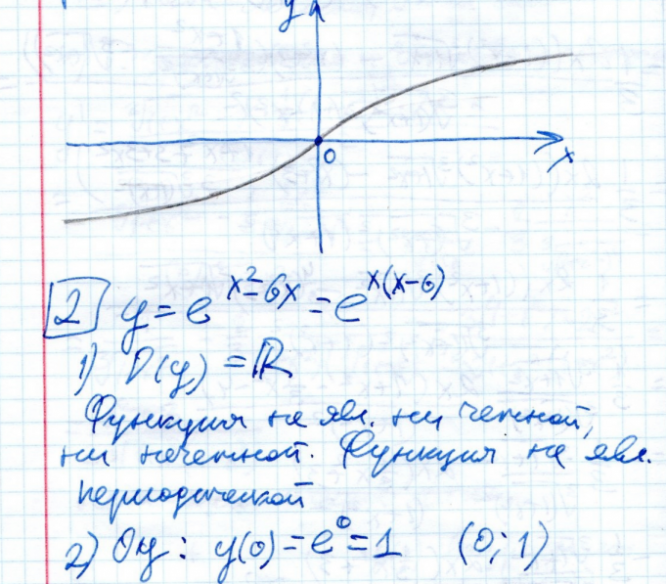 y
0
x
2 y = e^{x²-6x} = e^{x(x-6)}
1) D(y) = ℝ
Функция не явл. ни четной,
ни нечетной. Функция не явл.
периодической
2) Oy : y(0) = e⁰ = 1 (0; 1)